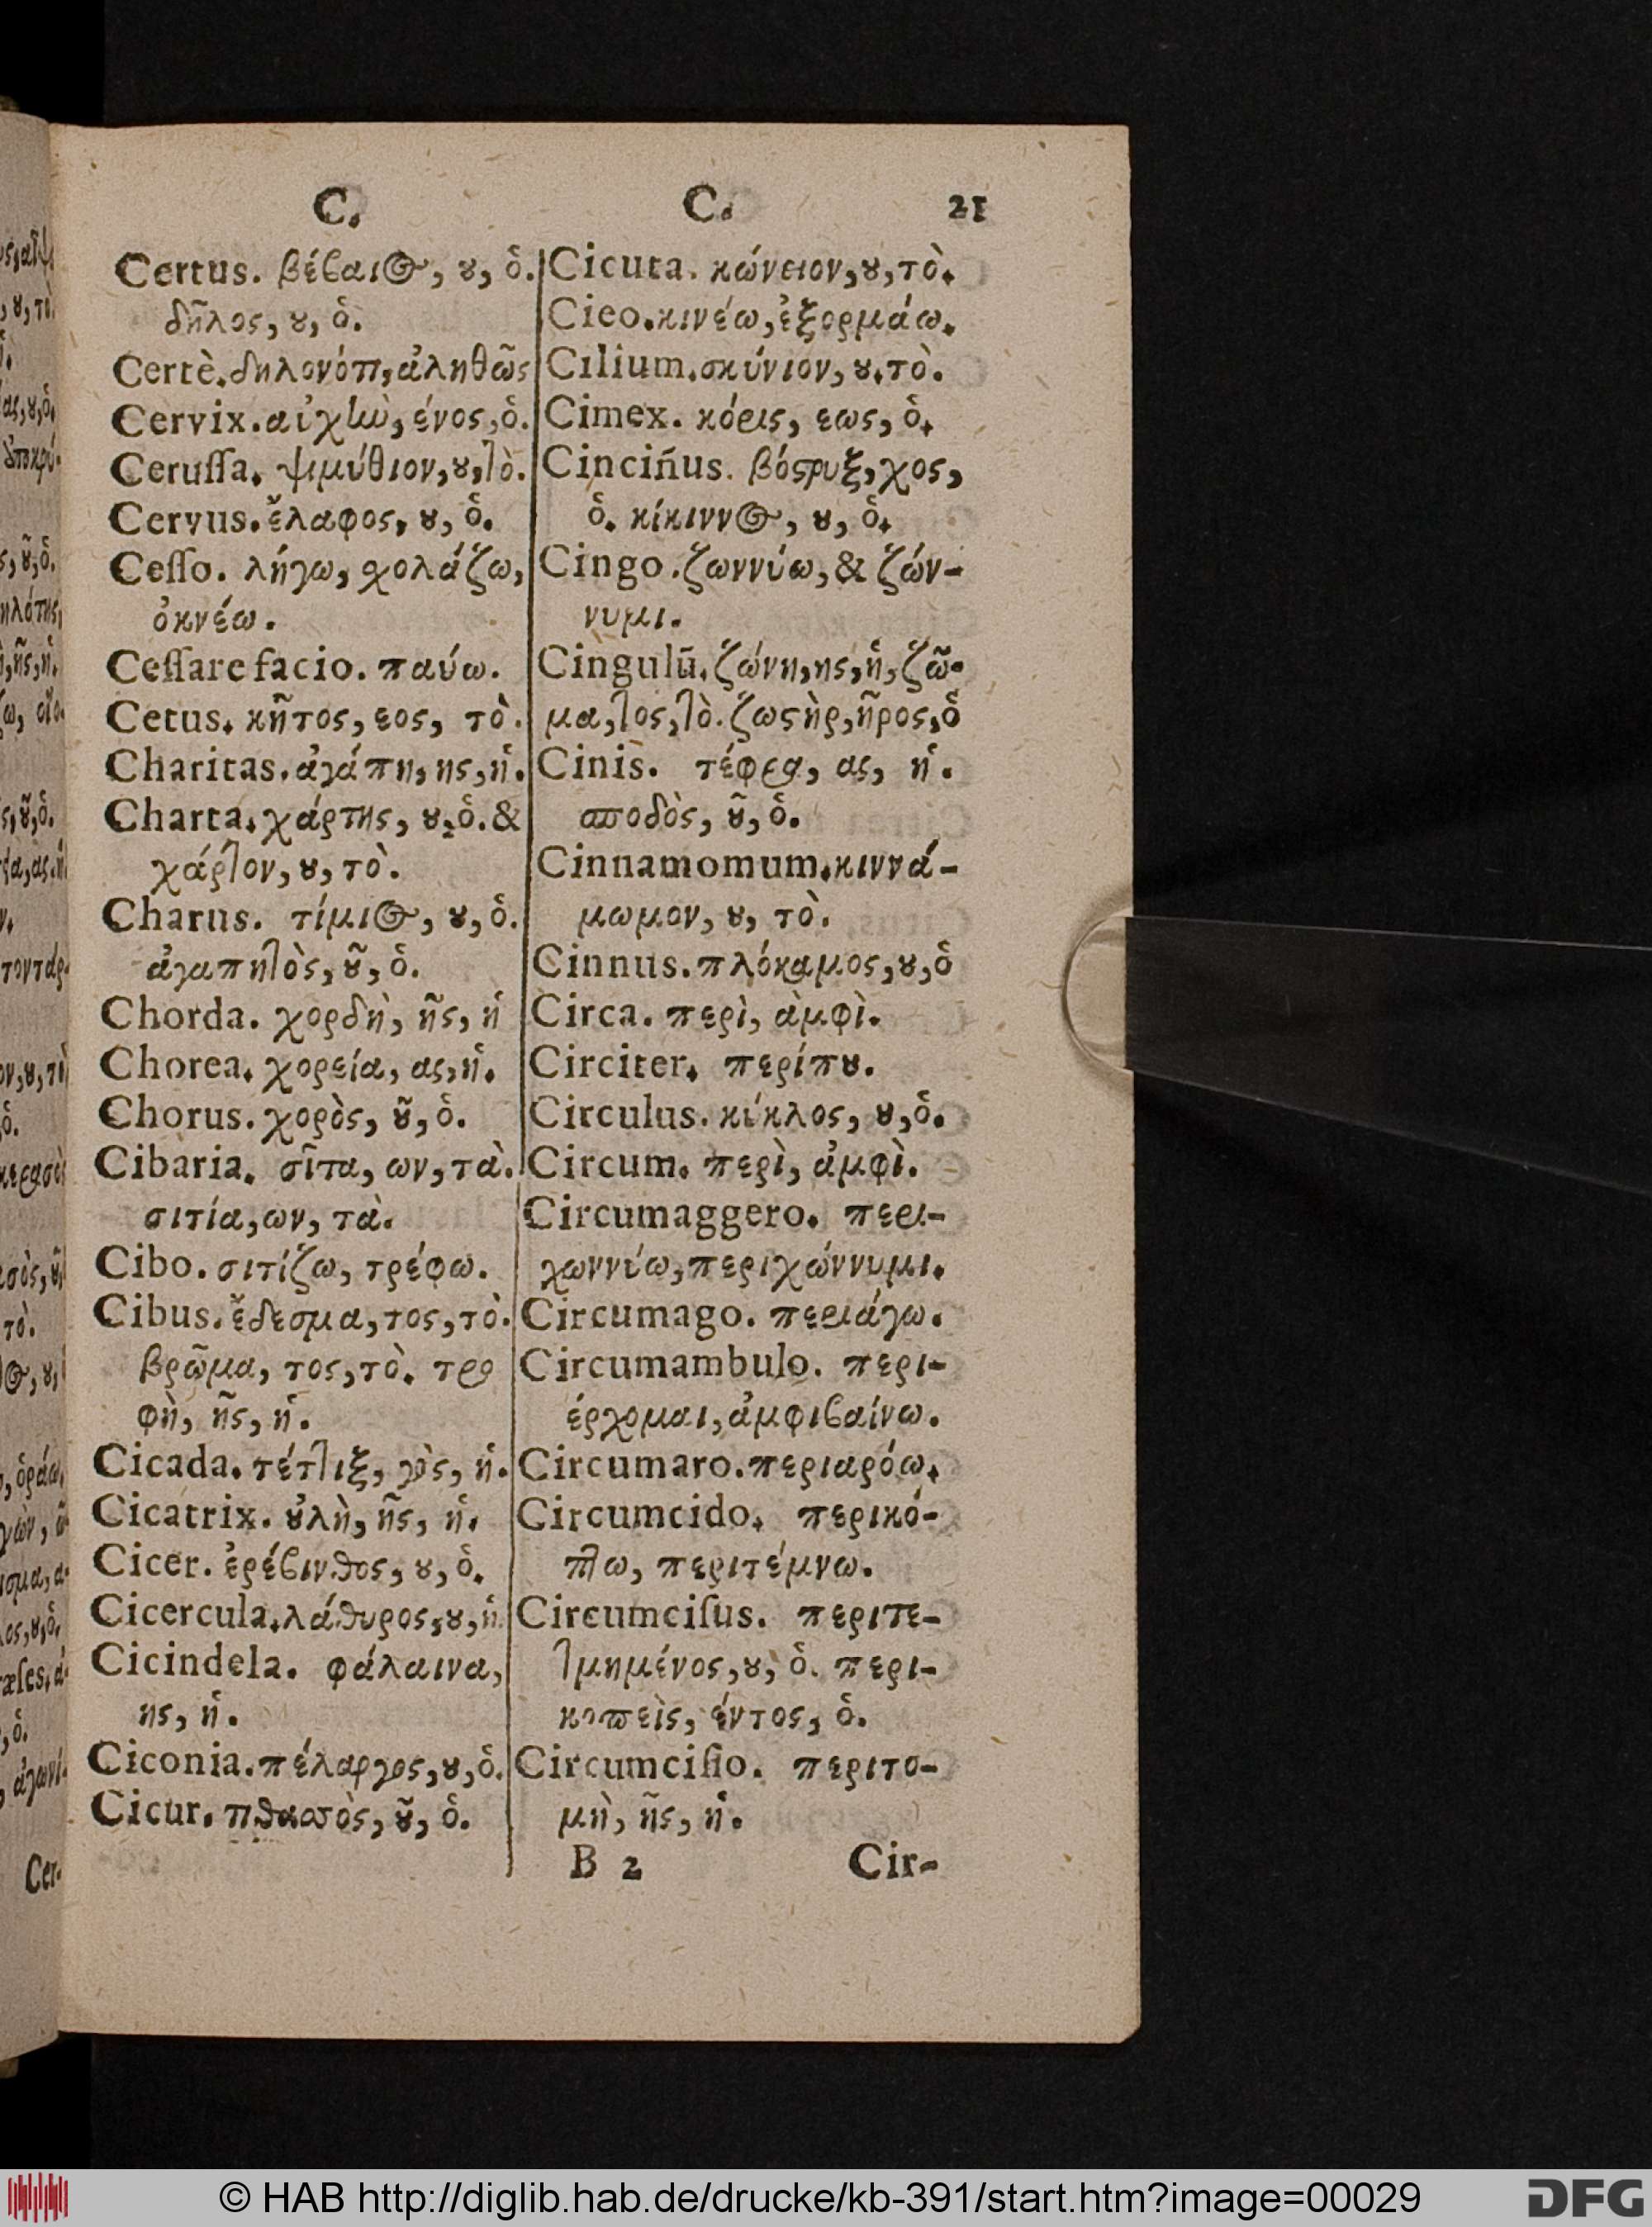 C.
Certus. βέβαιος, ȣ, ὁ.
δῆλος, ȣ, ὁ.
Certè. δηλονότι, ἀληθῶς
Cervix. αὐχὴν, ένος, ὁ.
Ceruſſa. ψιμύθιον, ȣ, τὸ.
Cervus. ἔλαφος, ȣ, ὁ.
Ceſſo. λήγω, σχολάζω,
ὀκνέω.
Ceſſare facio. παύω.
Cetus. κῆτος, εος, τὸ.
Charitas. ἀγάπη, ης, ἡ.
Charta. χάρτης, ȣ, ὁ. &
χάρτον, ȣ, τὸ.
Charus. τίμιος, ȣ, ὁ.
ἀγαπητὸς, ȣ͂, ὁ.
Chorda. χορδὴ, ῆς, ἡ
Chorea. χορεία, ας, ἡ.
Chorus. χορὸς, ȣ͂, ὁ.
Cibaria. σῖτα, ων, τὰ.
σιτία, ων, τὰ.
Cibo. σιτίζω, τρέφω.
Cibus. ἔδεσμα, τος, τὸ.
βρῶμα, τος, τὸ. τρο
φὴ, ῆς, ἡ.
Cicada. τέττιξ, γὸς, ἡ.
Cicatrix. ȣ̓λὴ, ῆς, ἡ.
Cicer. ἐρέβινθος, ȣ, ὁ.
Cicercula. λάθυρος, ȣ, ἡ
Cicindela. φάλαινα,
ης, ἡ.
Ciconia. πέλαργος, ȣ, ὁ.
Cicur. τιθασσὸς, ȣ͂, ὁ.
C. 21
Cicuta. κώνειον, ȣ, τὸ.
Cieo. κινέω, ἐξορμάω.
Cilium. σκύνιον, ȣ. τὸ.
Cimex. κόρις, εως, ὁ.
Cinciñus. βόστρυξ, χος,
ὁ. κίκιννος, ȣ, ὁ.
Cingo. ζωννύω, & ζών-
νυμι.
Cingulū. ζώνη, ης, ἡ, ζῶ-
μα, τος, τὸ. ζωστὴρ, ῆρος, ὁ
Cinis. τέφρα, ας, ἡ.
σποδὸς, ȣ͂, ὁ.
Cinnamomum. κιννά-
μωμον, ȣ, τὸ.
Cinnus. πλόκαμος, ȣ, ὁ
Circa. περὶ, ἀμφὶ.
Circiter. περίπȣ.
Circulus. κύκλος, ȣ, ὁ.
Circum. περὶ, ἀμφὶ.
Circumaggero. περι-
χωννύω, περιχώννυμι.
Circumago. περιάγω.
Circumambulo. περι-
έρχομαι, ἀμφιβαίνω.
Circumaro. περιαρόω.
Circumcido. περικό-
πτω, περιτέμνω.
Circumciſus. περιτε-
τμημένος, ȣ, ὁ. περι-
κοπεὶς, έντος, ὁ.
Circumciſio. περιτο-
μὴ, ῆς, ἡ.
B 2 Cir-
© HAB http://diglib.hab.de/drucke/kb-391/start.htm?image=00029
DFG